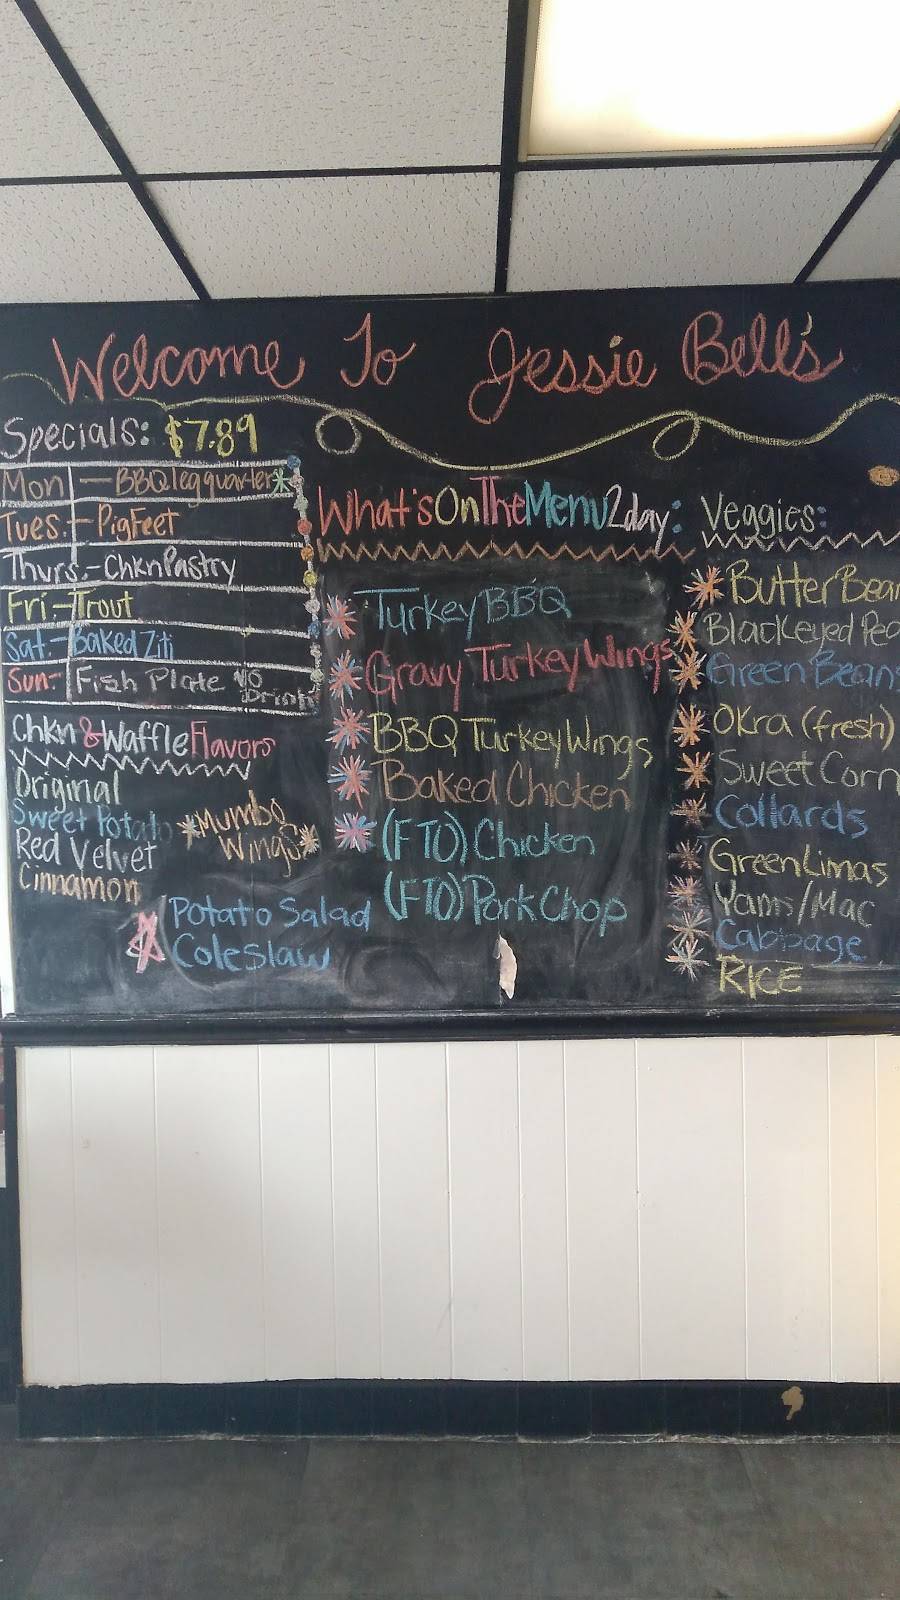 Welcome To Jessie Bell's
Specials: $7.89
Mon — BBQ leg quarter
Tues. - PigFeet
Thurs. - Chkn Pastry
Fri - Trout
Sat. - Baked Ziti
Sun: - Fish Plate No Drink
Chkn & Waffle Flavors
Original
Sweet Potato
Red Velvet
Cinnamon
Mumbo
Wings
Potato Salad
Coleslaw
What's On The Menu 2day:
Turkey BBQ
Gravy Turkey Wings
BBQ Turkey Wings
Baked Chicken
(FTO) Chicken
(FTO) Pork Chop
Veggies:
Butter Bean
Blackeyed Pea
Green Beans
Okra (fresh)
Sweet Corn
Collards
Green Limas
Yams/Mac
Cabbage
RICE